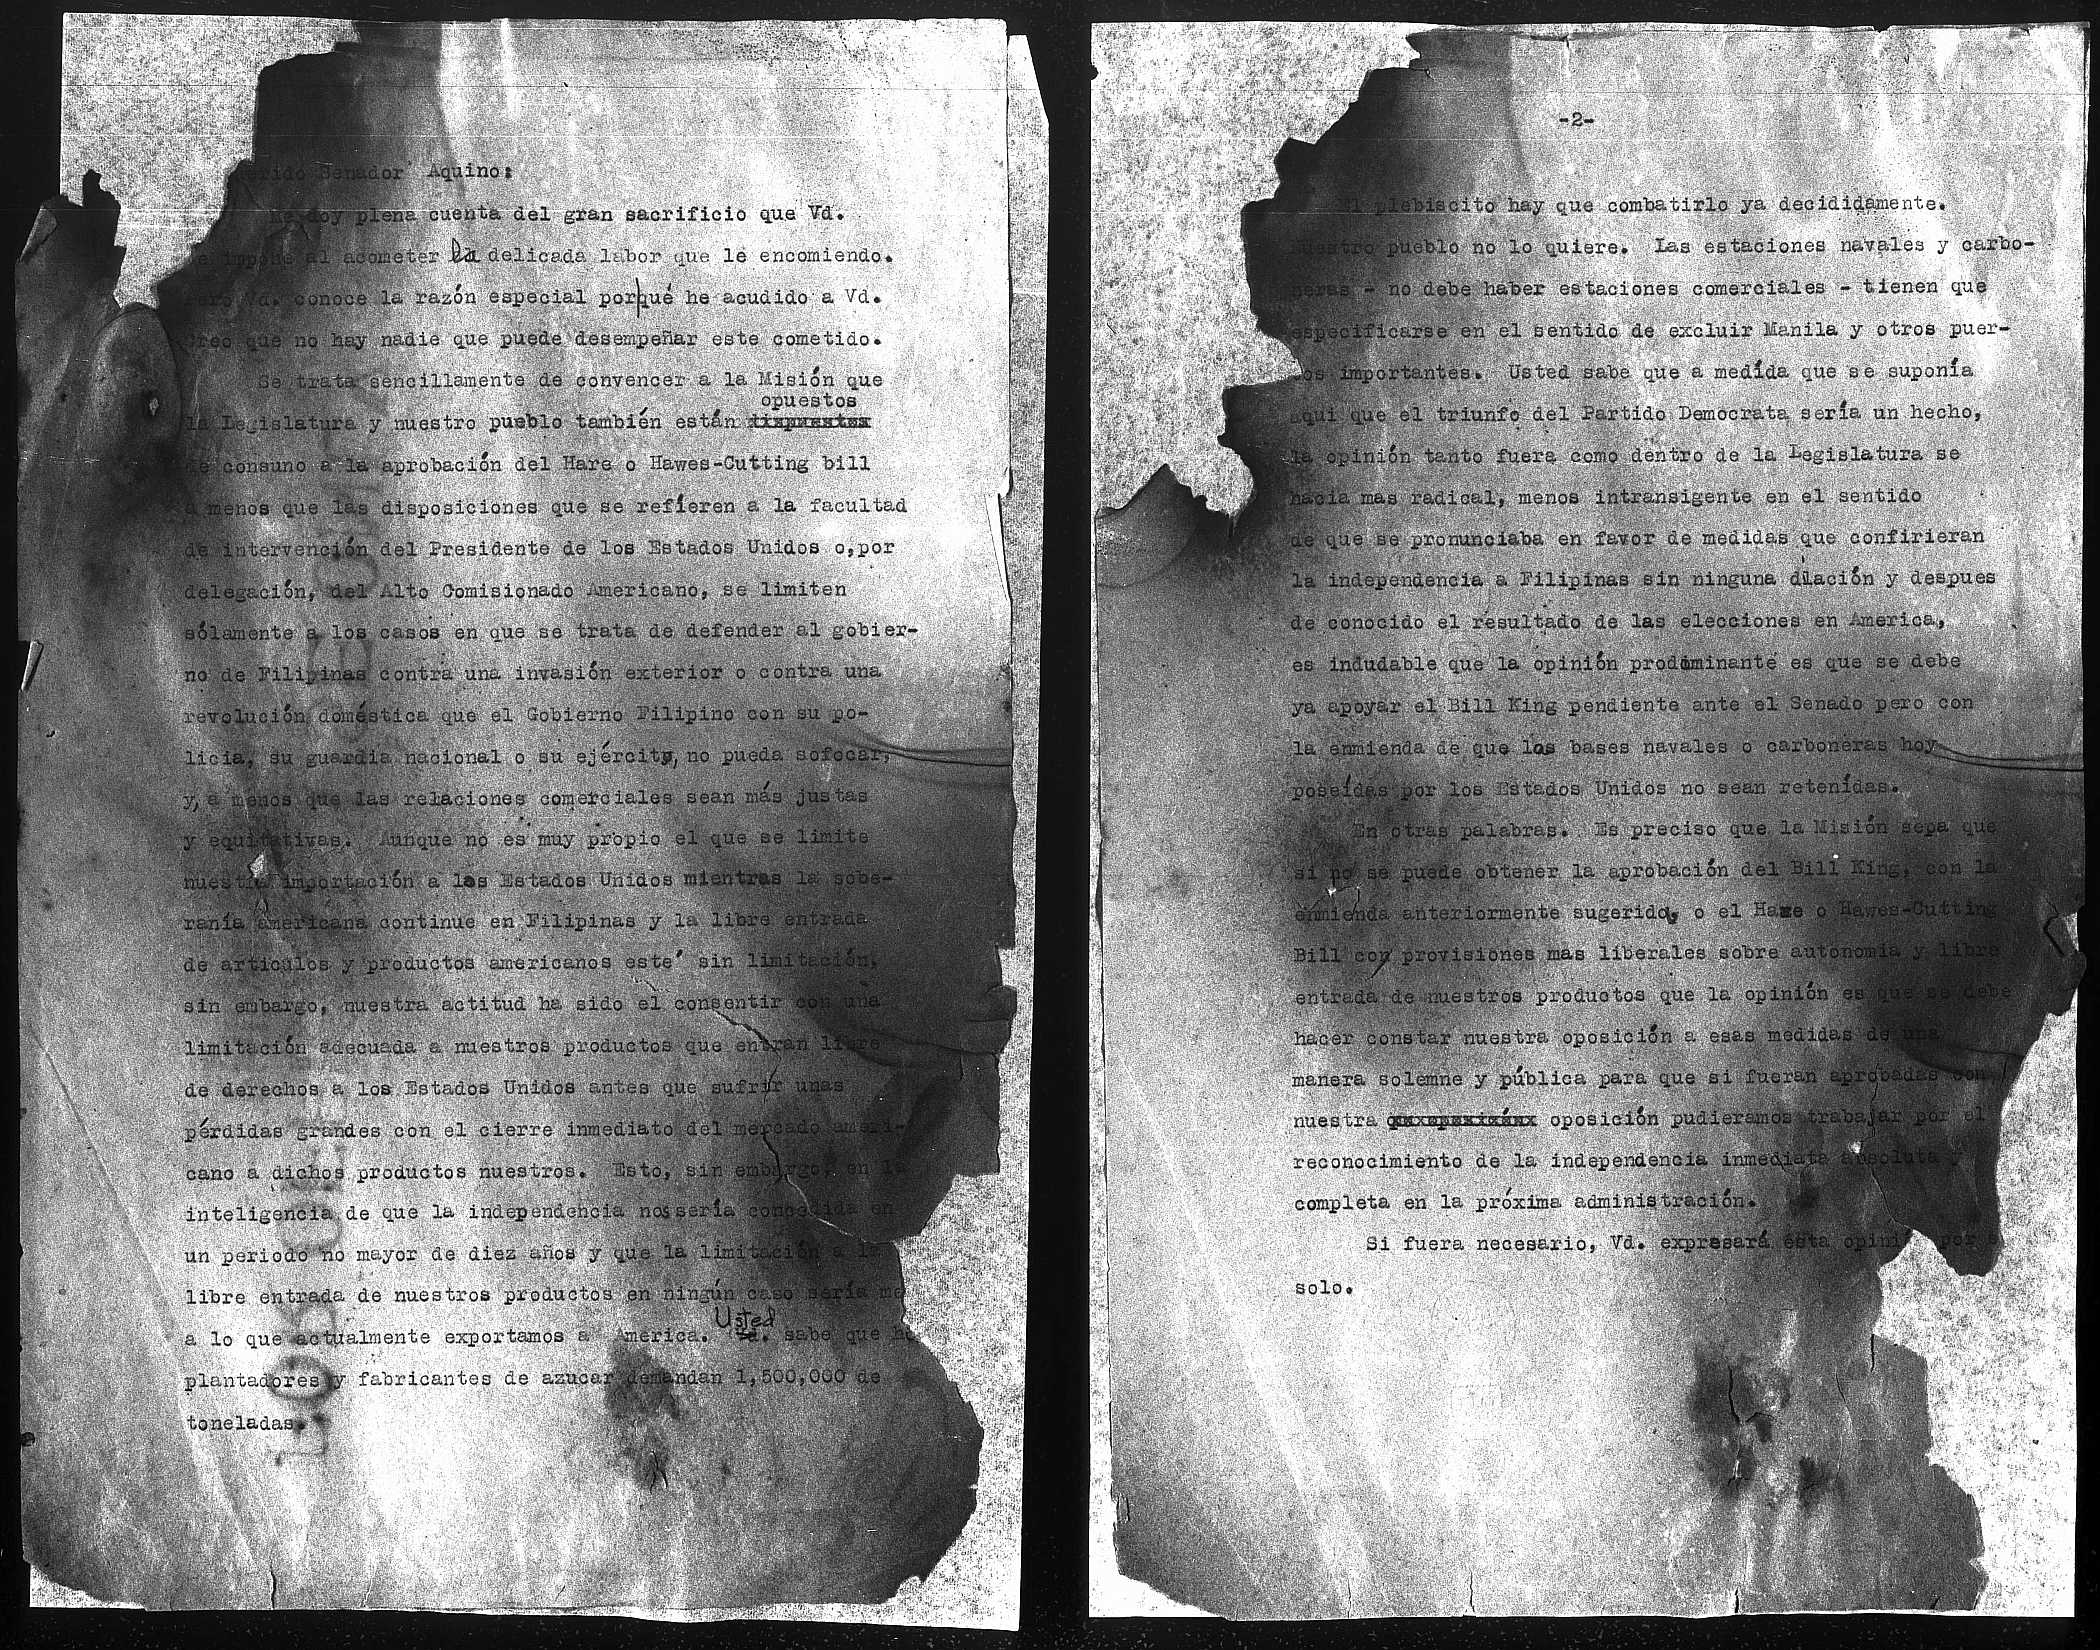 Senador Aquino:
Me doy plena cuenta del gran sacrificio que Vd.
se impone al acometer la delicada labor que le encomiendo.
Pero Vd. conoce la razón especial porqué he acudido a Vd.
Creo que no hay nadie que puede desempeñar este cometido.
Se trata sencillamente de convencer a la Misión que
opuestos
la Legislatura y nuestro pueblo también están
de consuno a la aprobación del Hare o Hawes-Cutting bill
a menos que las disposiciones que se refieren a la facultad
de intervención del Presidente de los Estados Unidos o,por
delegación, del Alto Comisionado Americano, se limiten
sólamente a los casos en que se trata de defender al gobier-
no de Filipinas contra una invasión exterior o contra una
revolución doméstica que el Gobierno Filipino con su po-
licia, su guardia nacional o su ejército, no pueda sofocar,
y, a menos que las relaciones comerciales sean más justas
y equitativas. Aunque no es muy propio el que se limite
nuestra importación a los Estados Unidos mientras la sobe-
ranía americana continue en Filipinas y la libre entrada
de articulos y productos americanos esté sin limitación,
sin embargo, nuestra actitud ha sido el consentir con una
limitación adecuada a nuestros productos que entran libre
de derechos a los Estados Unidos antes que sufrir unas
pérdidas grandes con el cierre inmediato del mercado ameri-
cano a dichos productos nuestros. Esto, sin embargo, en
inteligencia de que la independencia nos sería concedida en
un periodo no mayor de diez años y que la limitación a la
libre entrada de nuestros productos en ningún caso sería
Usted
a lo que actualmente exportamos a America. Vd. sabe que
plantadores y fabricantes de azucar demandan 1,500,000 de
toneladas.
-2-
El plebiscito hay que combatirlo ya decididamente.
Nuestro pueblo no lo quiere. Las estaciones navales y carbo-
neras - no debe haber estaciones comerciales - tienen que
especificarse en el sentido de excluir Manila y otros puer-
tos importantes. Usted sabe que a medída que se suponía
aqui que el triunfo del Partido Democrata sería un hecho,
la opinión tanto fuera como dentro de la Legislatura se
hacia mas radical, menos intransigente en el sentido
de que se pronunciaba en favor de medidas que confirieran
la independencia a Filipinas sin ninguna dilación y despues
de conocido el resultado de las elecciones en America,
es indudable que la opinión prodiminante es que se debe
ya apoyar el Bill King pendiente ante el Senado pero con
la enmienda de que las bases navales o carboneras hoy
poseídas por los Estados Unidos no sean retenídas.
En otras palabras. Es preciso que la Misión sepa que
si no se puede obtener la aprobación del Bill King, con la
enmienda anteriormente sugerida, o el Hare o Hawes-Cutting
Bill con provisiones mas liberales sobre autonomia y libre
entrada de nuestros productos que la opinión es que se debe
hacer constar nuestra oposición a esas medidas de una
manera solemne y pública para que si fueran aprobadas con
nuestra oposición pudieramos trabajar por el
reconocimiento de la independencia inmediata absoluta y
completa en la próxima administración.
Si fuera necesario, Vd. expresará esta por
solo.